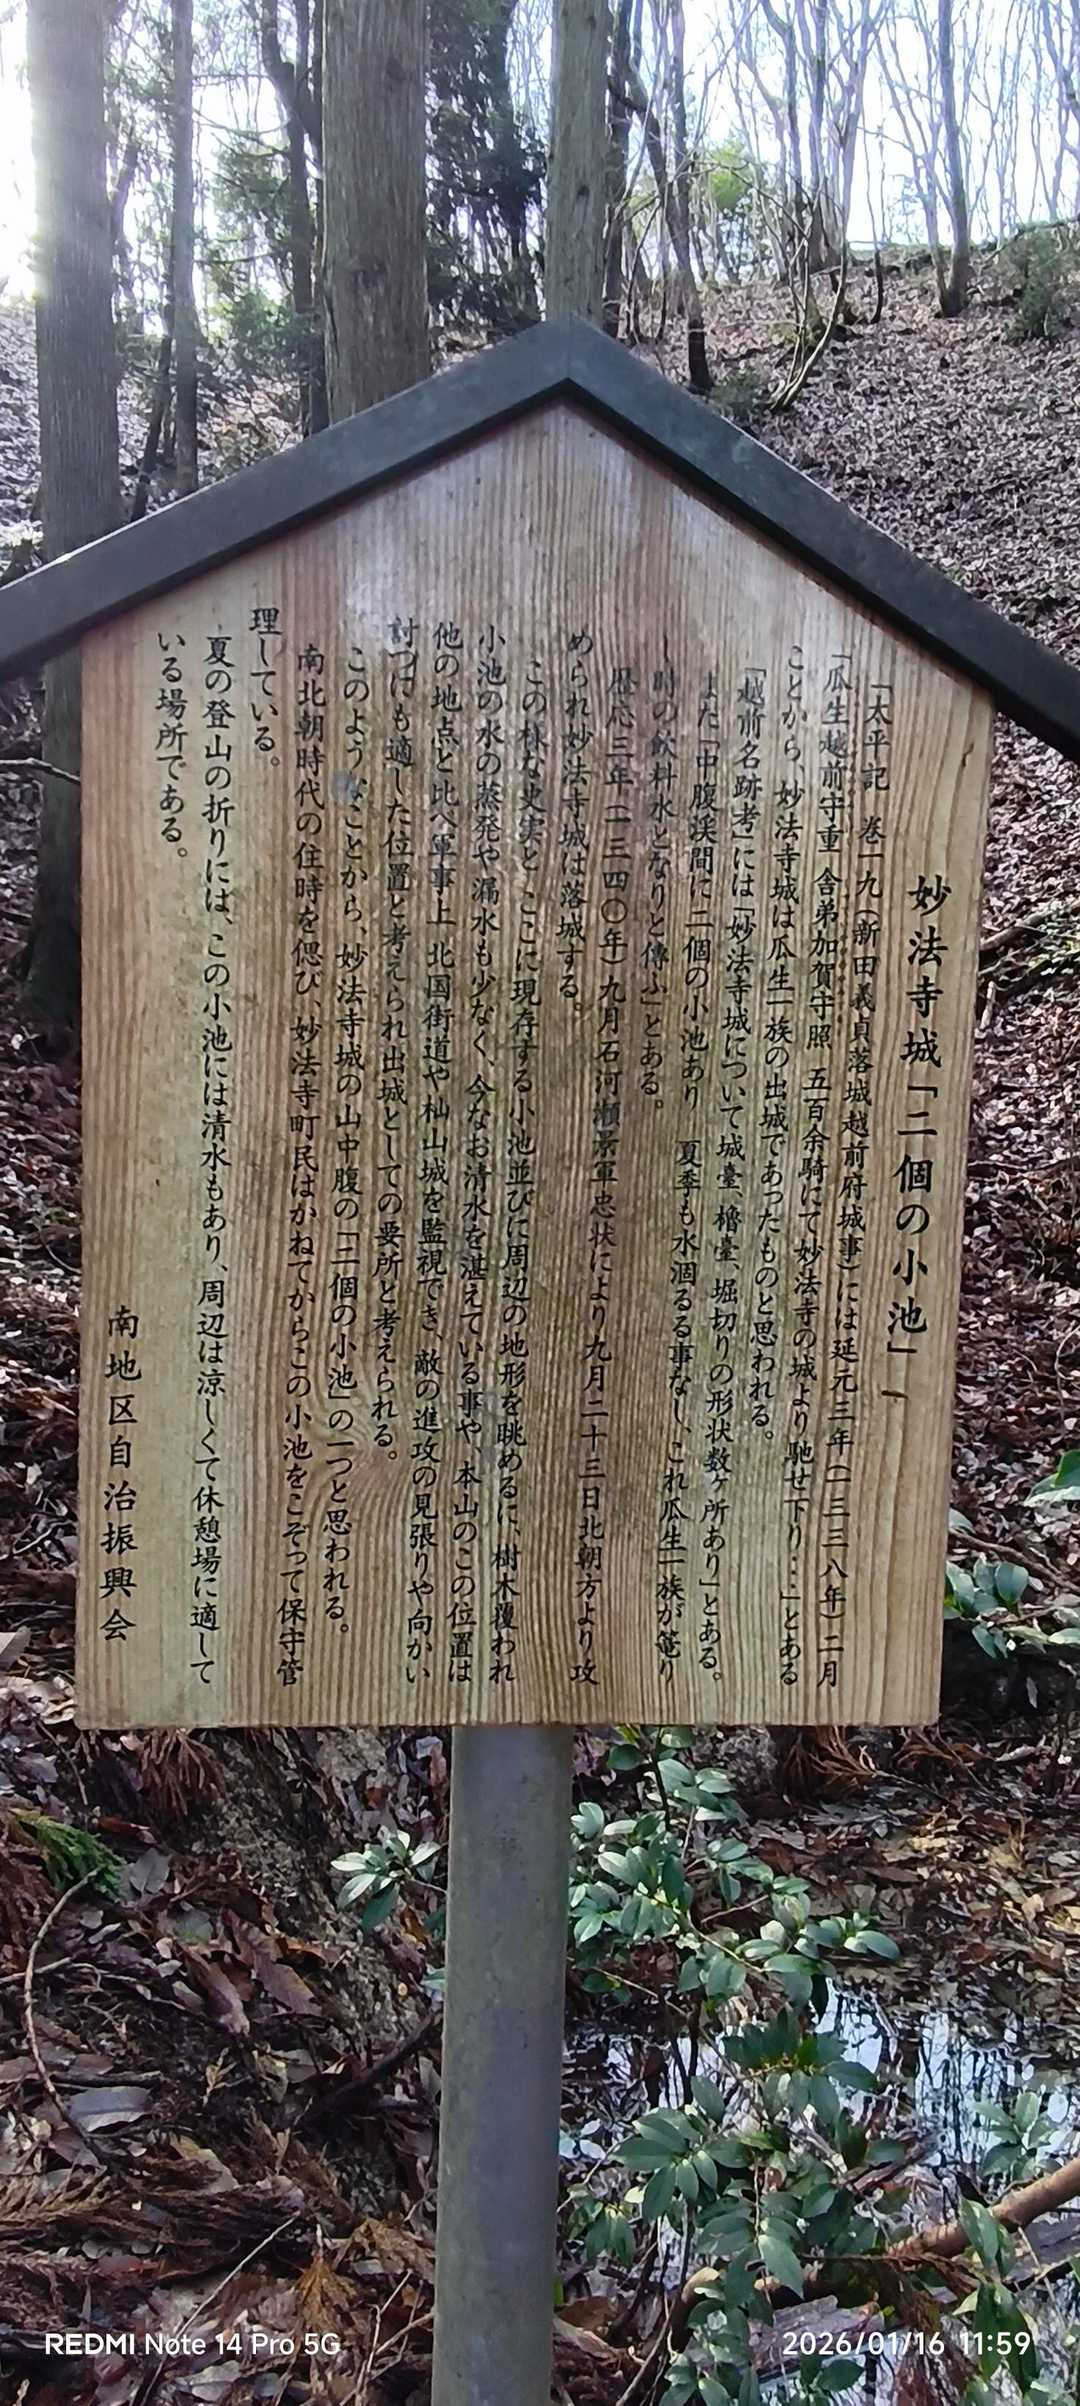 妙法寺城「二個の小池」
「太平記 巻一九(新田義貞落城越前府城事)には延元三年(一三三八年)二月
「瓜生越前守重 舎弟加賀守照 五百余騎にて妙法寺の城より馳せ下り・・・」とある
ことから、妙法寺城は瓜生一族の出城であったものと思われる。
「越前名跡考」には「妙法寺城について城臺、櫓臺、堀切りの形状数ヶ所あり」とある。
また「中腹渓間に二個の小池あり 夏季も水涸るる事なし、これ瓜生一族が篭り
し時の飲料水となりと傳ふ」とある。
歴応三年(一三四〇年)九月石河瀬景軍忠状により九月二十三日北朝方より攻
められ妙法寺城は落城する。
この様な史実と ここに現存する小池並びに周辺の地形を眺めるに、樹木覆われ
小池の水の蒸発や漏水も少なく、今なお清水を湛えている事や、本山のこの位置は
他の地点と比べ軍事上 北国街道や杣山城を監視でき、敵の進攻の見張りや向かい
討つにも適した位置と考えられ出城としての要所と考えられる。
このようなことから、妙法寺城の山中腹の「二個の小池」の一つと思われる。
南北朝時代の住時を偲び、妙法寺町民はかねてからこの小池をこぞって保守管
理している。
夏の登山の折りには、この小池には清水もあり、周辺は涼しくて休憩場に適して
いる場所である。
南地区自治振興会
REDMI Note 14 Pro 5G
2026/01/16 11:59